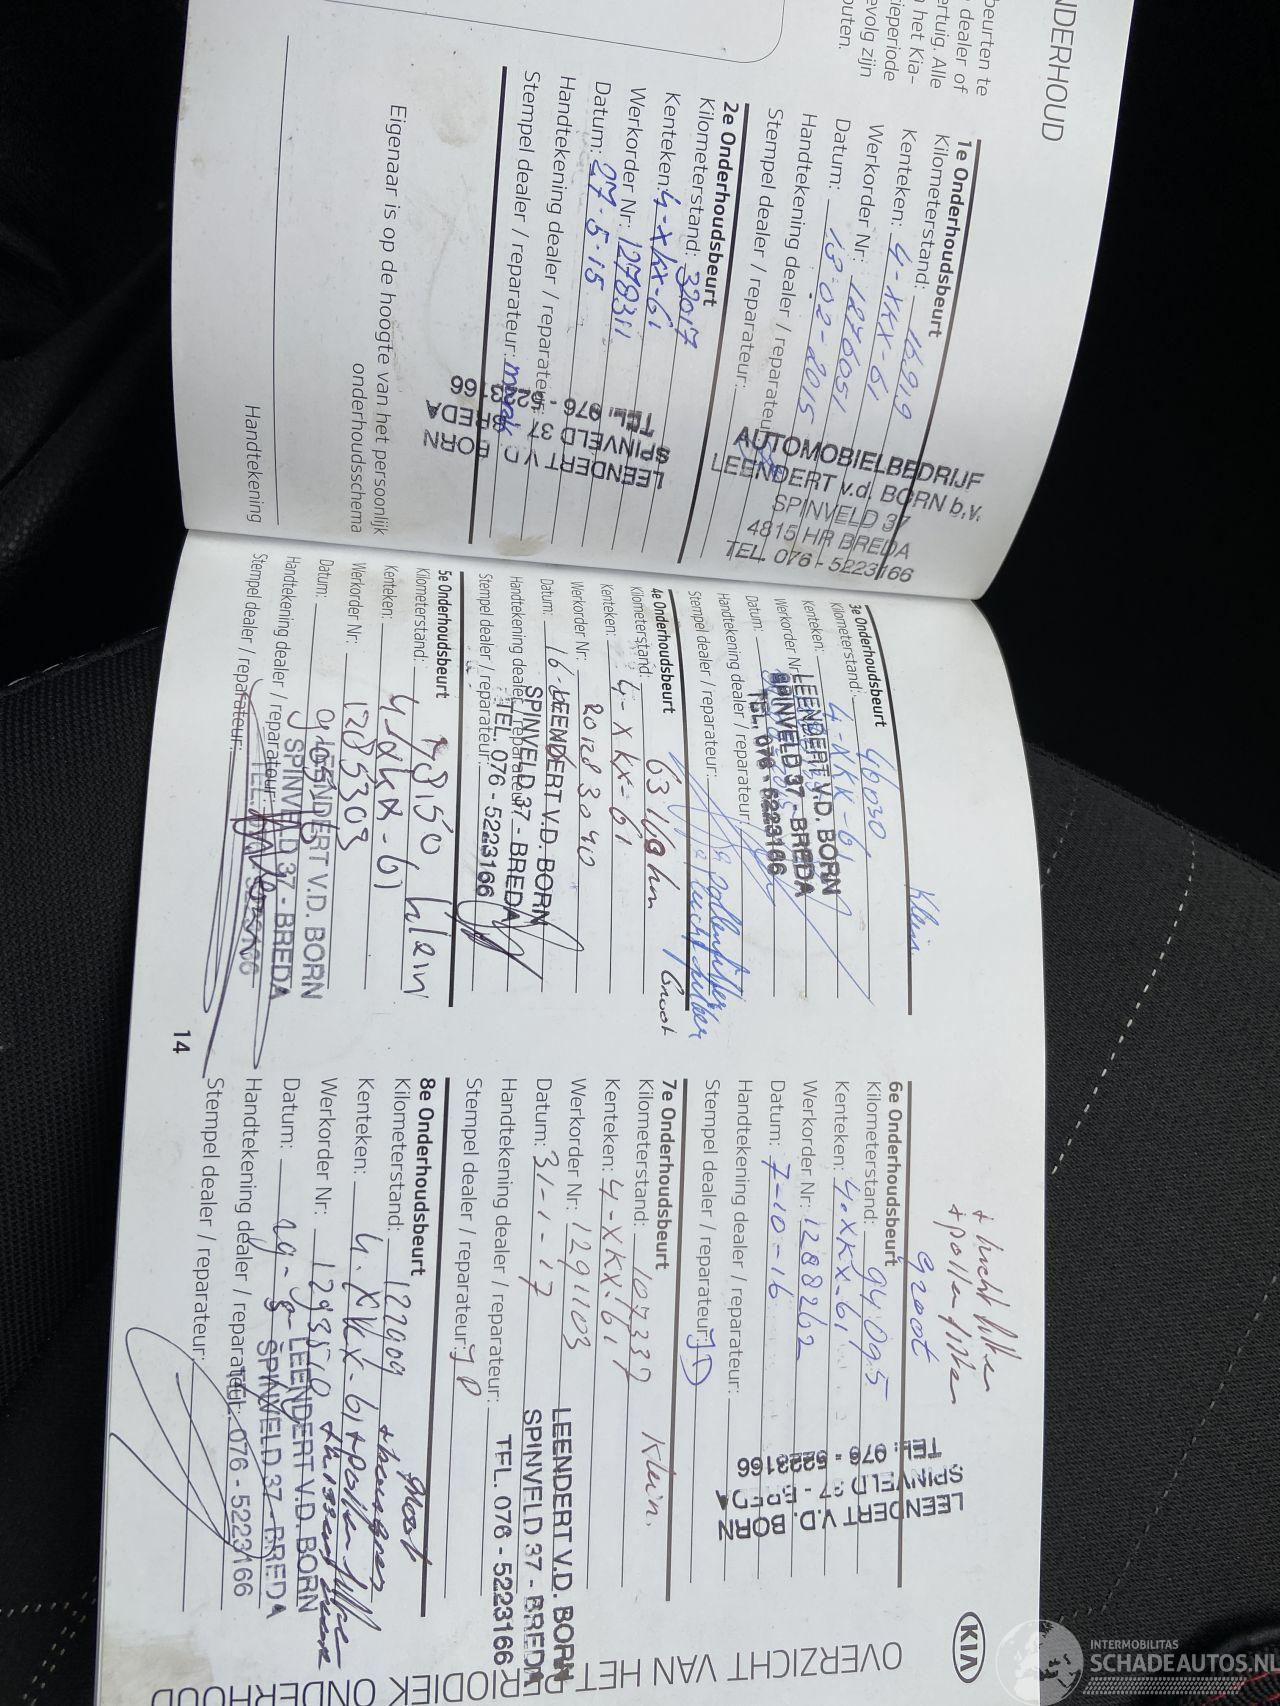 NDERHOUD
beurten te
dealer of
ertuig. Alle
het Kia-
ieperiode
evolg zijn
outen.
1e Onderhoudsbeurt
Kilometerstand: 16919
Kenteken: 4-XKX-61
Werkorder Nr: 1276051
Datum: 18-02-2015
Handtekening dealer / reparateur:
Stempel dealer / reparateur:
AUTOMOBIELBEDRIJF
LEENDERT v.d. BORN b.v.
SPINVELD 37
4815 HR BREDA
TEL. 076 - 5223166
2e Onderhoudsbeurt
Kilometerstand: 32017
Kenteken: 4-XKX-61
Werkorder Nr: 1278311
Datum: 27-5-15
Handtekening dealer / reparateur:
Stempel dealer / reparateur:
LEENDERT V.D. BORN
SPINVELD 37 - BREDA
TEL: 076 - 5223166
Eigenaar is op de hoogte van het persoonlijk
onderhoudsschema
Handtekening
Klein
3e Onderhoudsbeurt
Kilometerstand: 46030
Kenteken: 4-XKX-61
Werkorder Nr:
Datum:
Handtekening dealer / reparateur:
Stempel dealer / reparateur:
LEENDERT V.D. BORN
SPINVELD 37 - BREDA
TEL. 076 - 5223166
+ pollenfilter
+ luchtfilter
4e Onderhoudsbeurt
Kilometerstand: Groot
Kenteken: 4-XKX-61
Werkorder Nr: 201283040
Datum: 16-
Handtekening dealer / reparateur:
Stempel dealer / reparateur:
LEENDERT V.D. BORN
SPINVELD 37 - BREDA
TEL. 076 - 5223166
5e Onderhoudsbeurt
Kilometerstand: 78150 klein
Kenteken: 4-XKX-61
Werkorder Nr: 1285303
Datum:
Handtekening dealer / reparateur:
Stempel dealer / reparateur:
LEENDERT V.D. BORN
SPINVELD 37 - BREDA
TEL. 076 - 5223166
14
+ luchtfilter
+ pollenfilter
groot
6e Onderhoudsbeurt
Kilometerstand: 94095
Kenteken: 4-XKX-61
Werkorder Nr: 1288262
Datum: 7-10-16
Handtekening dealer / reparateur:
Stempel dealer / reparateur: JD
LEENDERT V.D. BORN
SPINVELD 37 - BREDA
TEL: 076 - 5223166
7e Onderhoudsbeurt
Kilometerstand: 107337 Klein.
Kenteken: 4-XKX-61
Werkorder Nr: 1291103
Datum: 31-1-17
Handtekening dealer / reparateur:
Stempel dealer / reparateur: JD
LEENDERT V.D. BORN
SPINVELD 37 - BREDA
TEL. 076 - 5223166
8e Onderhoudsbeurt
Kilometerstand: 122909 groot
Kenteken: 4-XKX-61 + pollenfilter
Werkorder Nr:
Datum: 29-8-
Handtekening dealer / reparateur:
Stempel dealer / reparateur:
LEENDERT V.D. BORN
SPINVELD 37 - BREDA
TEL. 076 - 5223166
KIA
OVERZICHT VAN HET PERIODIEK ONDERHOUD
INTERMOBILITAS
SCHADEAUTOS.NL